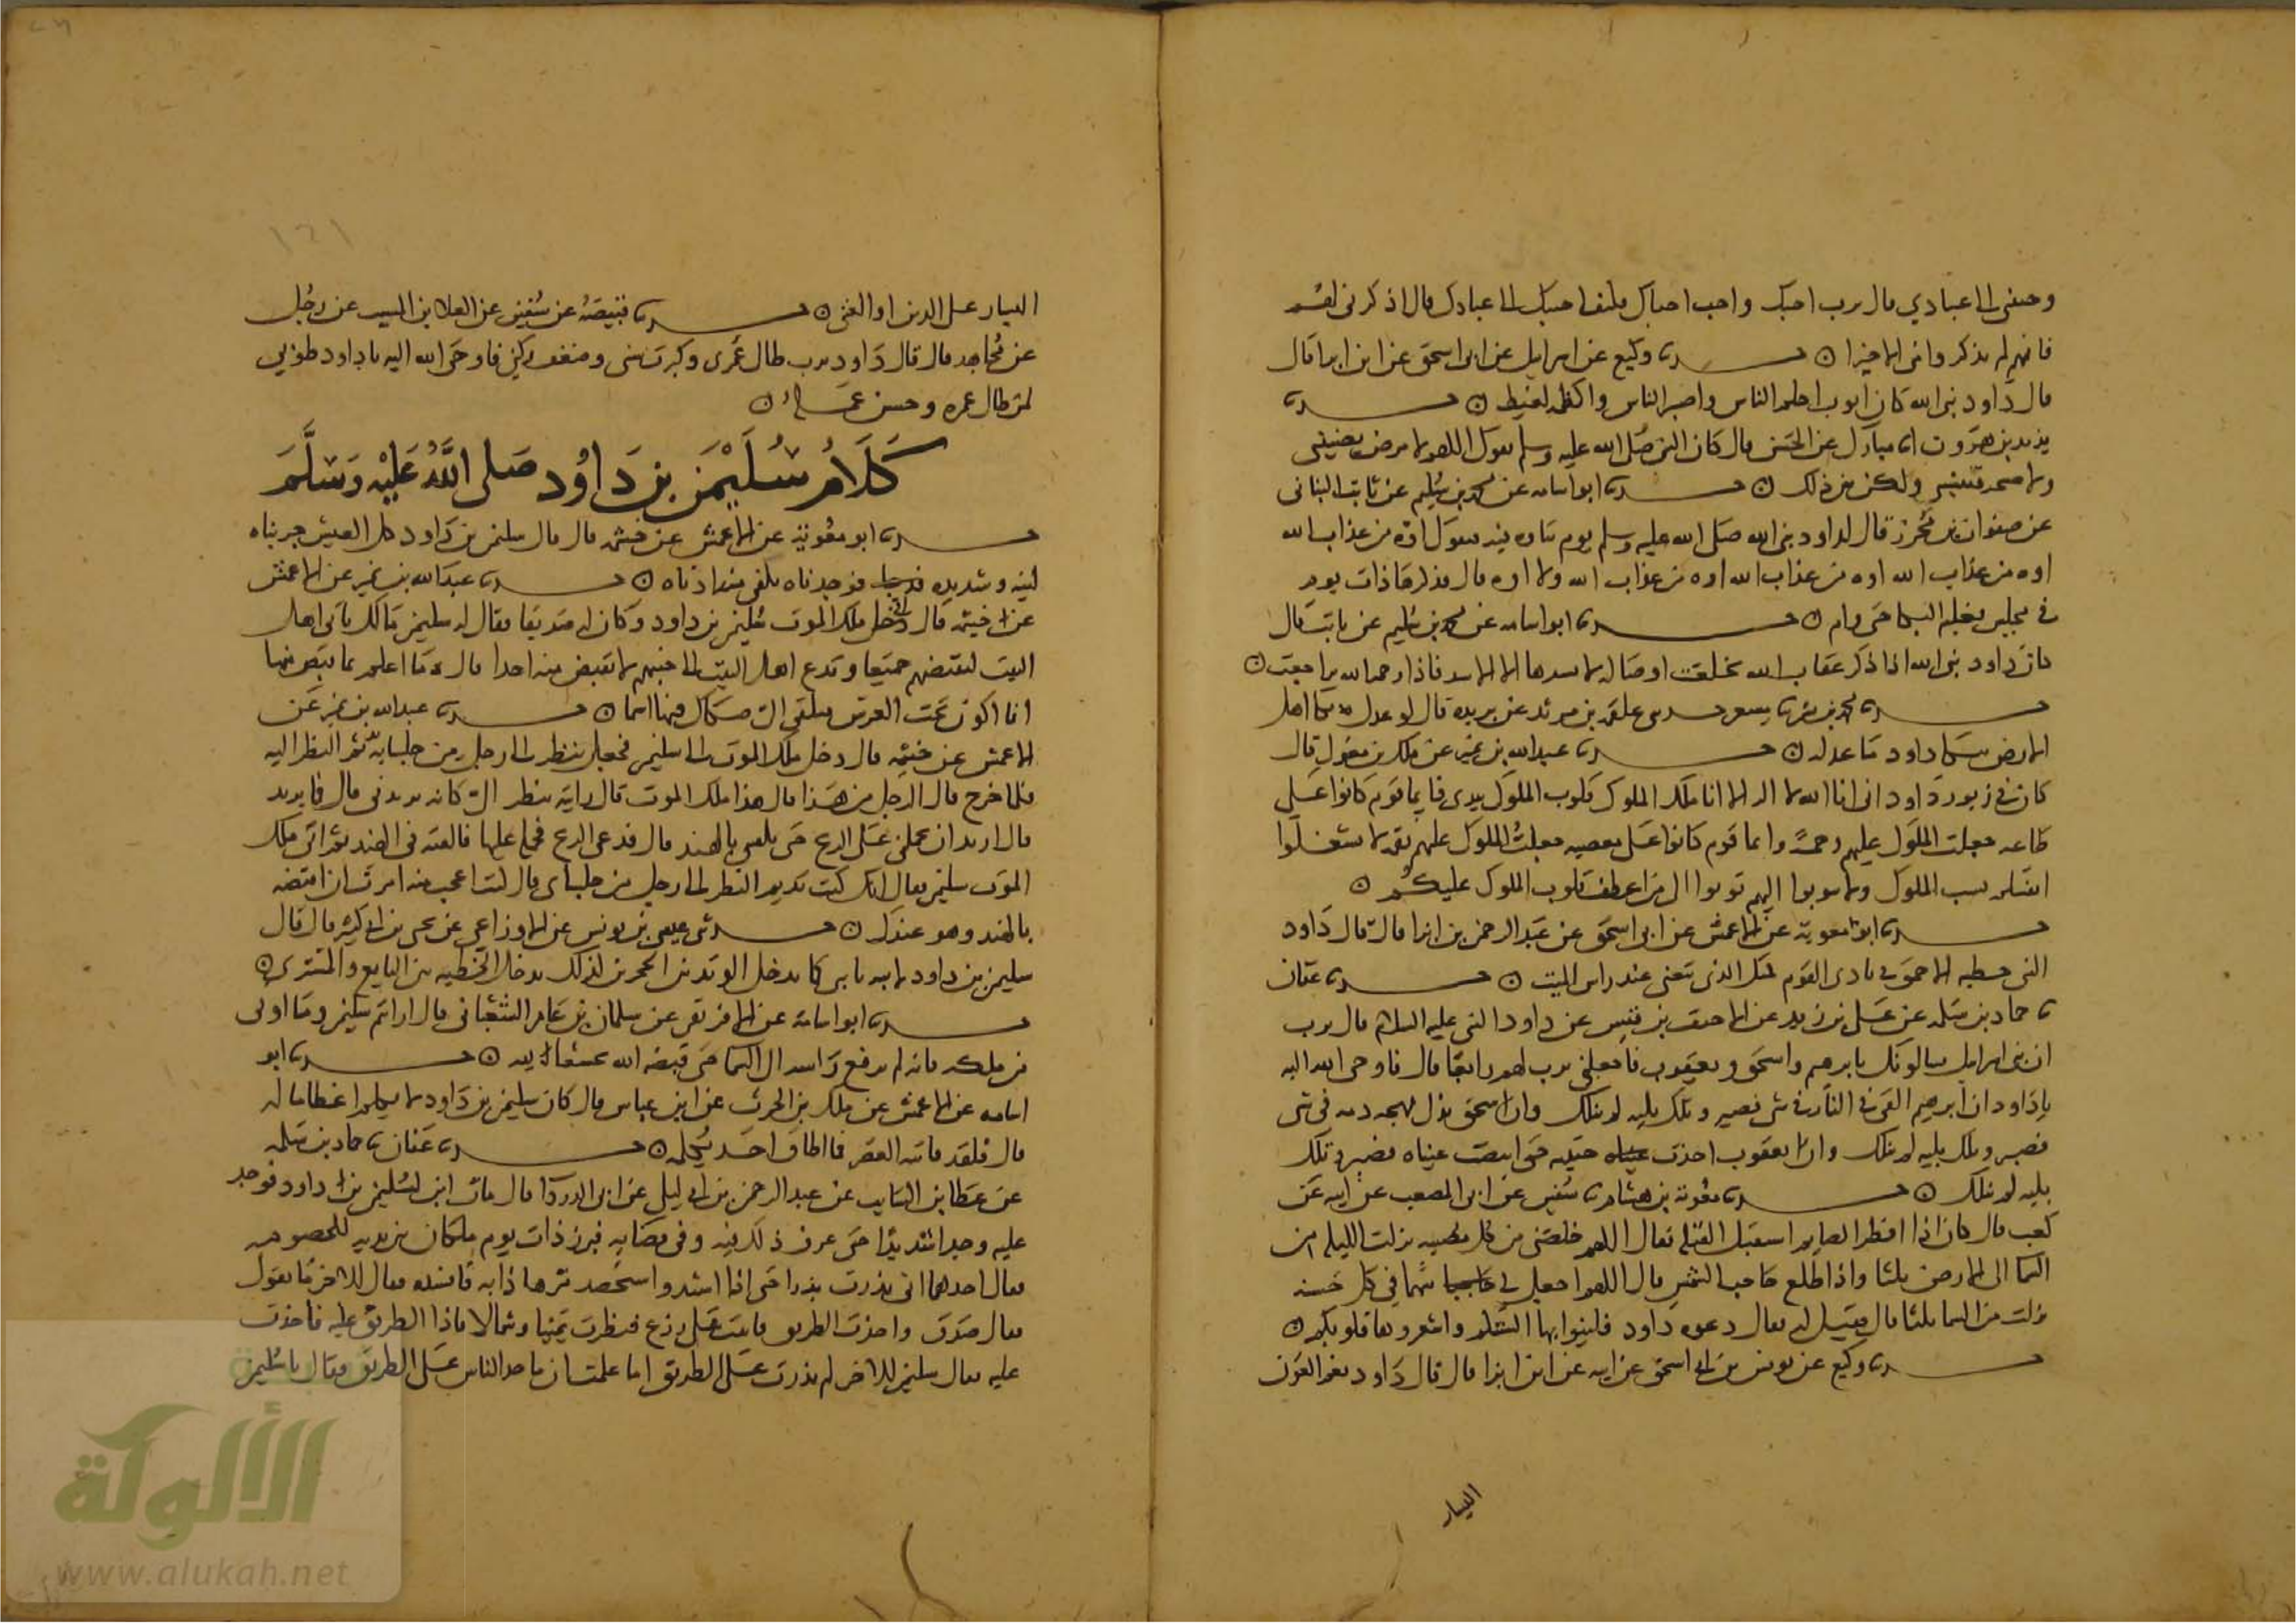 وحببني الى عبادي قال يرب احبك واحب احباك فكيف احببك الى عبادك قال اذكرني لهم
فانهم لن يذكروا مني الا خيرا ○ حدثنا وكيع عن اسرايل عن ابي اسحق عن ابن ابزا قال
قال داود نبي الله كان ايوب احلم الناس واصبر الناس واكظمه لغيظ ○ حدثنا
يزيد بن هرون انا مبارك عن الحسن قال كان النبي صلى الله عليه وسلم يقول اللهم لا مرض يضنيني
ولا صحة تنسيني ولكن بين ذلك ○ حدثنا ابو اسامه عن محمد بن سليم عن ثابت البناني
عن صفوان بن محرز قال كان لداود نبي الله صلى الله عليه وسلم يوم يتاوه فيه يقول اوه من عذاب الله
اوه من عذاب الله اوه من عذاب الله اوه من عذاب الله ولا اوه قال فذكرها ذات يوم
في مجلس فغلبه البكا حتى قام ○ حدثنا ابو اسامه عن محمد بن سليم عن ثابت قال
كان داود نبي الله اذا ذكر عقاب الله تخلعت اوصاله لا يشدها الا الاسر فاذا ذكر رحمة الله تراجعت ○
حدثنا محمد بن بشر نا مسعر حدثني علقمه بن مرثد عن بريده قال لو عدل بكا اهل
الارض ببكا داود ما عدله ○ حدثنا عبد الله بن نمير عن ملك بن مغول قال
كان في زبور داود اني انا الله لا اله الا انا ملك الملوك قلوب الملوك بيدي فايما قوم كانوا على
طاعه جعلت الملوك عليهم رحمة وايما قوم كانوا على معصيه جعلت الملوك عليهم نقمه لا تشغلوا
انفسكم بسب الملوك ولا تتوبوا اليهم توبوا الي اعطف قلوب الملوك عليكم ○
حدثنا ابو معوية عن الاعمش عن ابي اسحق عن عبد الرحمن بن ابزا قال قال داود
النبي خطبه الاحمق في نادي القوم كمثل الذي يتغنى عند راس الميت ○ حدثنا عفان
نا حماد بن سلمه عن علي بن زيد عن الاحنف بن قيس عن داود النبي عليه السلام قال يرب
ان بني اسرايل يسالونك بابرهيم واسحق ويعقوب فاجعلني يرب لهم رابعا قال فاوحى الله اليه
يا داود ان ابرهيم القي في النار في سببي فصبر وتلك بليه لم تنلك وان اسحق بذل مهجه دمه في سببي
فصبر وتلك بليه لم تنلك وان يعقوب اخذت حبيبه حتى ابيضت عيناه فصبر وتلك
بليه لم تنلك ○ حدثنا معوية بن هشام نا سفين عن ابي المصعب عن ابيه عن
كعب قال كان اذا افطر الصايم استقبل القبله فقال اللهم خلصني من كل مصيبه نزلت الليله من
السما الى الارض ثلثا واذا طلع حاجب الشمس قال اللهم اجعل لي سهما في كل حسنه
نزلت من السما ثلثا قال فقيل له فقال دعوه داود فلينوا بها السنتكم واشعروها قلوبكم ○
حدثنا وكيع عن يونس بن ابي اسحق عن ابيه عن ابن ابزا قال قال داود نعم العون
اليسار
اليسار على الدين او الغنى ○ حدثنا قبيصة عن سفين عن العلا بن المسيب عن رجل
عن مجاهد قال قال داود يرب طال عمري وكبرت سني وضعف ركني فاوحى الله اليه يا داود طوبى
لمن طال عمره وحسن عمله ○
كلام سليمن بن داود صلى الله عليه وسلم
حدثنا ابو معوية عن الاعمش عن خيثمه قال قال سليمن بن داود كل العيش جربناه
لينه وشديده فوجدناه يكفي منه ادناه ○ حدثنا عبد الله بن نمير عن الاعمش
عن خيثمه قال دخل ملك الموت الى سليمن بن داود وكان له صديقا فقال له سليمن مالك تاتي اهل
البيت فتقبضهم جميعا وتدع اهل البيت الى جنبهم لا تقبض منهم احدا قال ما اعلم بما اقبض منها
انما اكون تحت العرش فيلقى الي صكاك فيها اسما ○ حدثنا عبد الله بن نمير عن
الاعمش عن خيثمه قال دخل ملك الموت الى سليمن فجعل ينظر الى رجل من جلسايه يديم النظر اليه
فلما خرج قال الرجل من هذا قال هذا ملك الموت قال رايته ينظر الي كانه يريدني قال فما تريد
قال اريد ان تحملني على الريح حتى تلقيني بالهند قال فدعى الريح فحمله عليها فالقته في الهند ثم اتى ملك
الموت سليمن فقال انك كنت تديم النظر الى رجل من جلساي قال كنت اعجب منه امرت ان اقبضه
بالهند وهو عندك ○ حدثني عيسى بن يونس عن الاوزاعي عن يحيى بن ابي كثير قال قال
سليمن بن داود لابنه يا بني كما يدخل الوتد بين الحجرين كذلك تدخل الخطيه بين البايع والمشتري ○
حدثنا ابو اسامة عن الافريقي عن سلمان بن عامر الشعباني قال ارايتم سليمن وما اوتي
من ملكه فانه لم يرفع راسه الى السما حتى قبضه الله تخشعا لله ○ حدثنا ابو
اسامه عن الاعمش عن ملك بن الحرث عن ابن عباس قال كان سليمن بن داود لا يكلم اعظاما له
قال فلقد فاتته العصر فما اطاق احد يكلمه ○ حدثنا عفان نا حماد بن سلمه
عن عطا بن السايب عن عبد الرحمن بن ابي ليلى عن ابي الدردا قال مات ابن لسليمن بن داود فوجد
عليه وجدا شديدا حتى عرف ذلك فيه وفي قضايه فبرز ذات يوم ملكان بين يديه للخصومه
فقال احدهما اني بذرت بذرا حتى اذا اشتد واستحصد مر هذا به فافسده فقال للاخر ما تقول
فقال صدق واخذت الطريق فاتيت على زرع فنظرت يمينا وشمالا فاذا الطريق عليه فاخذت
عليه فقال سليمن للاخر لم بذرت على الطريق اما علمت ان ماخذ الناس على الطريق فقال يا سليمن
الألوكة
www.alukah.net